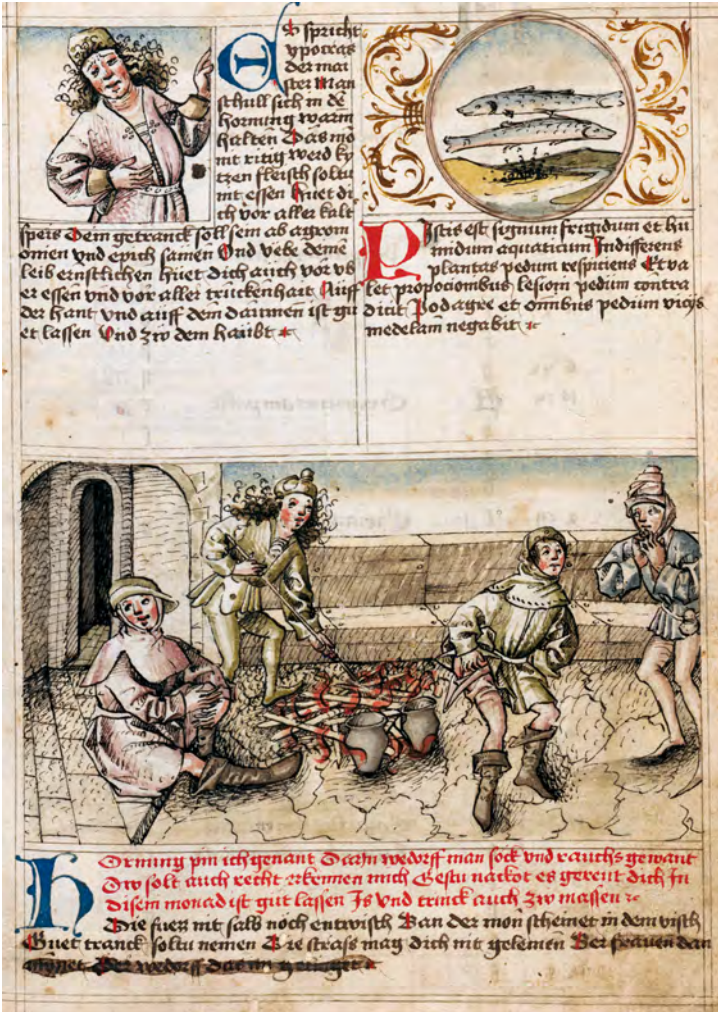 Es spricht
ypocras
der mai
ster Man
schull sich in dē
hornung warm
halten Das mo
nit ritig werd ky
tzen fleisch soltu
nit essen Huet di
ch vor aller kalt
speis Dein getranck soll sein ab agrom
onien vnd epich samen Vnd vebe deinē
leib ernstlichen hüet dich auch vor vb
er essen vnd vor aller trückenhait Auff
der hant vnd auff dem daumen ist gu
et lassen Vnd zw dem haubt
Piscis est signum frigidum et hu
midum aquaticum Indifferens
plantas pedum respiciens Et va
let propocionibus lesiom pedum contra
dicit Podagre et omnibus pedum vicijs
medelam negabit
Hornung pin ich genant Darin wedorff man sock vnd rauchs gewant
Dw solt auch recht erkennen mich Gestu nackot es gereut dich In
disem monad ist gut lassen Is vnd trinck auch zw massen
Die fuess nit salb noch entwisch Wan der mon scheinet in dem visch
Guet tranck soltu nemen Die strass mag dich nit gelemen Wer frauen dan
Der wedorff